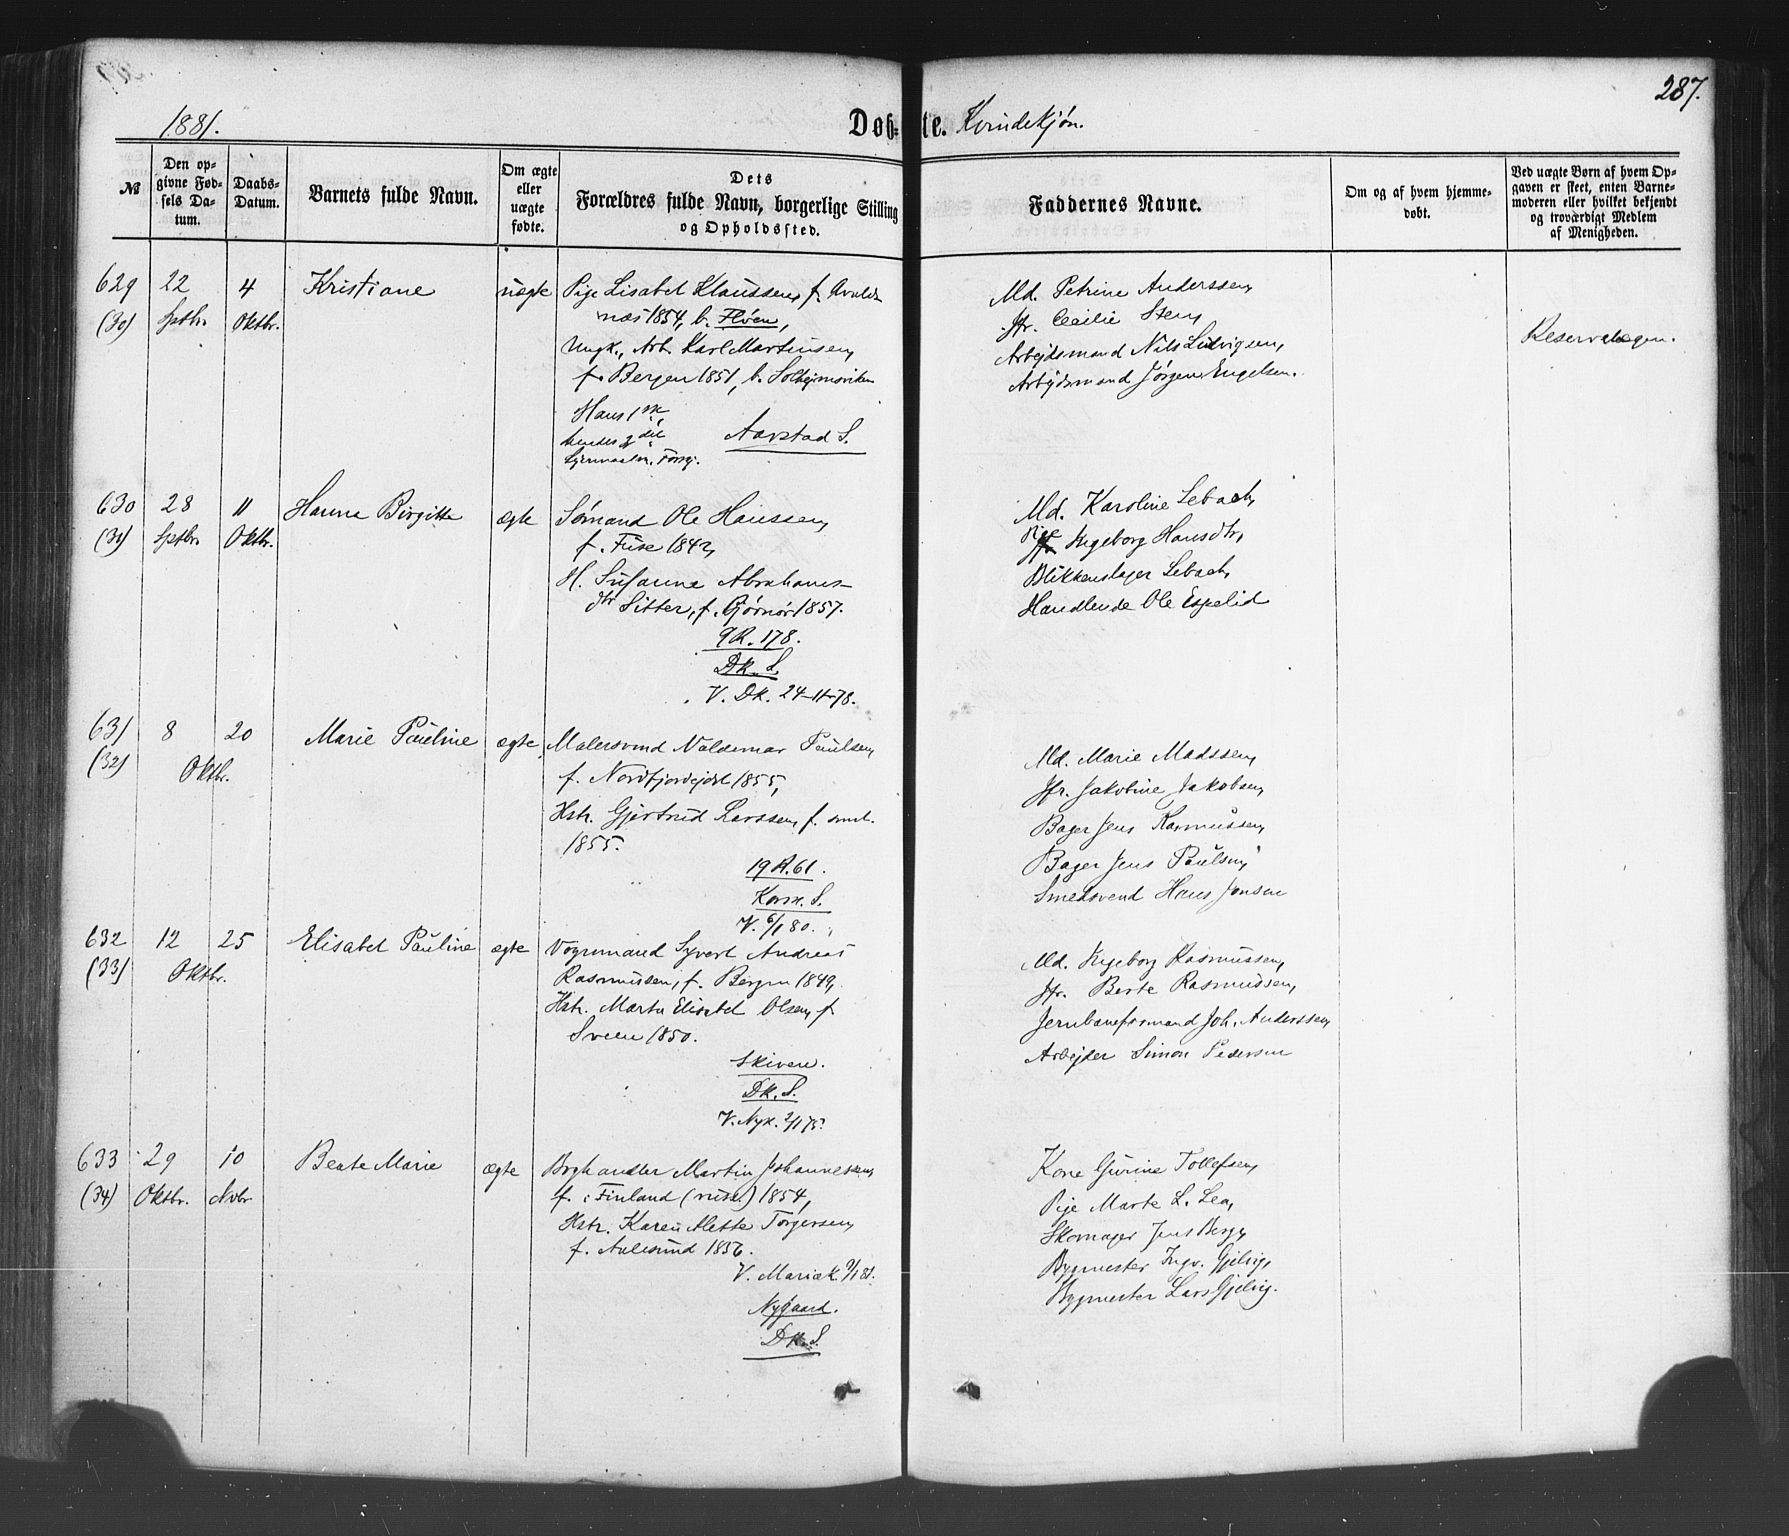 287.
1881.
Døb= te. Kvindekjøn.
№
Den op=
givne Fød=
sels Da=
tum.
Daabs=
Datum.
Barnets fulde Navn.
Om ægte
eller
uægte
fødte.
Dets
Forældres fulde Navn, borgerlige Stilling
og Opholdssted.
Faddernes Navne.
Om og af hvem hjemme=
døbt.
Ved uægte Børn af hvem Op=
gaven er skeet, enten Barne=
moderen eller hvilket bekjendt
og troværdigt Medlem
af Menigheden.
629
(30)
22
Sptbr.
4
Oktbr.
Kristiane
uægte
Pige Lisabet Klaussen, f.
næs 1854, b. Fløen,
Ungk., Arb. Karl Martinsen,
f. Bergen 1851, b. Solheimsviken
Hans 1ste,
hendes 2det
Lejermaal.
Aarstad S.
Md. Petrine Anderssen,
Jfr. Cecilie Steen,
Arbejdsmand Nils Ludvigsen,
Arbejdsmand Jørgen Engelsen.
630
(31)
28
Sptbr.
11
Oktbr.
Hanna Birgitte
ægte
Sømand Ole Hanssen,
f. Fuse 1842,
H. Susanna Abrahams-
dtr Sitter, f. 1857.
9 R. 178.
Dk. S.
V. Dk. 24-11-78.
Md. Karoline Lebach,
Pige Ingeborg Hansdtr,
Blikkenslager Lebach,
Handlende Ole Espelid
631
(32)
8
20
Oktbr.
Marie Pauline
ægte
Malersvend Valdemar Paulsen,
f. Nordfjordejdet 1855,
Hstr. Gjertrud Larssen, f. smst.
1855.
19 R. 61.
Korsk. S.
V. 6/1 80.
Md. Marie Madssen,
Jfr. Jakobine Jakobsen,
Bager Jens Rasmussen,
Bager Jens Paulsen,
Smedsvend Hans Jonsen
632
(33)
12
25
Oktbr.
Elisabet Pauline
ægte
Vognmand Syvert Andreas
Rasmussen, f. Bergen 1849,
Hstr. Marta Elisabet Olsen, f.
Sveen 1850.
Skiven.
Dk. S.
V. Nyk. 2/1 75.
Md. Ingeborg Rasmussen,
Jfr. Berte Rasmussen,
Jernbaneformand Joh. Anderssen,
Arbejder Simon Pedersen
633
(34)
29
Oktbr.
10
Nvbr.
Beate Marie
ægte
Boghandler Martin Johannesen,
f. i Finland (russ.) 1854,
Hstr. Karen Mette Torgersen,
f. Aalesund 1856.
V. Mariak. 9/1 81.
Nygaard.
Dk. S.
Kone Gurine Tollefsen,
Pige Marte L. Lea,
Skomager Jens Berge,
Bygmester Ingv. Gjelvig,
Bygmester Lars Gjelvig.